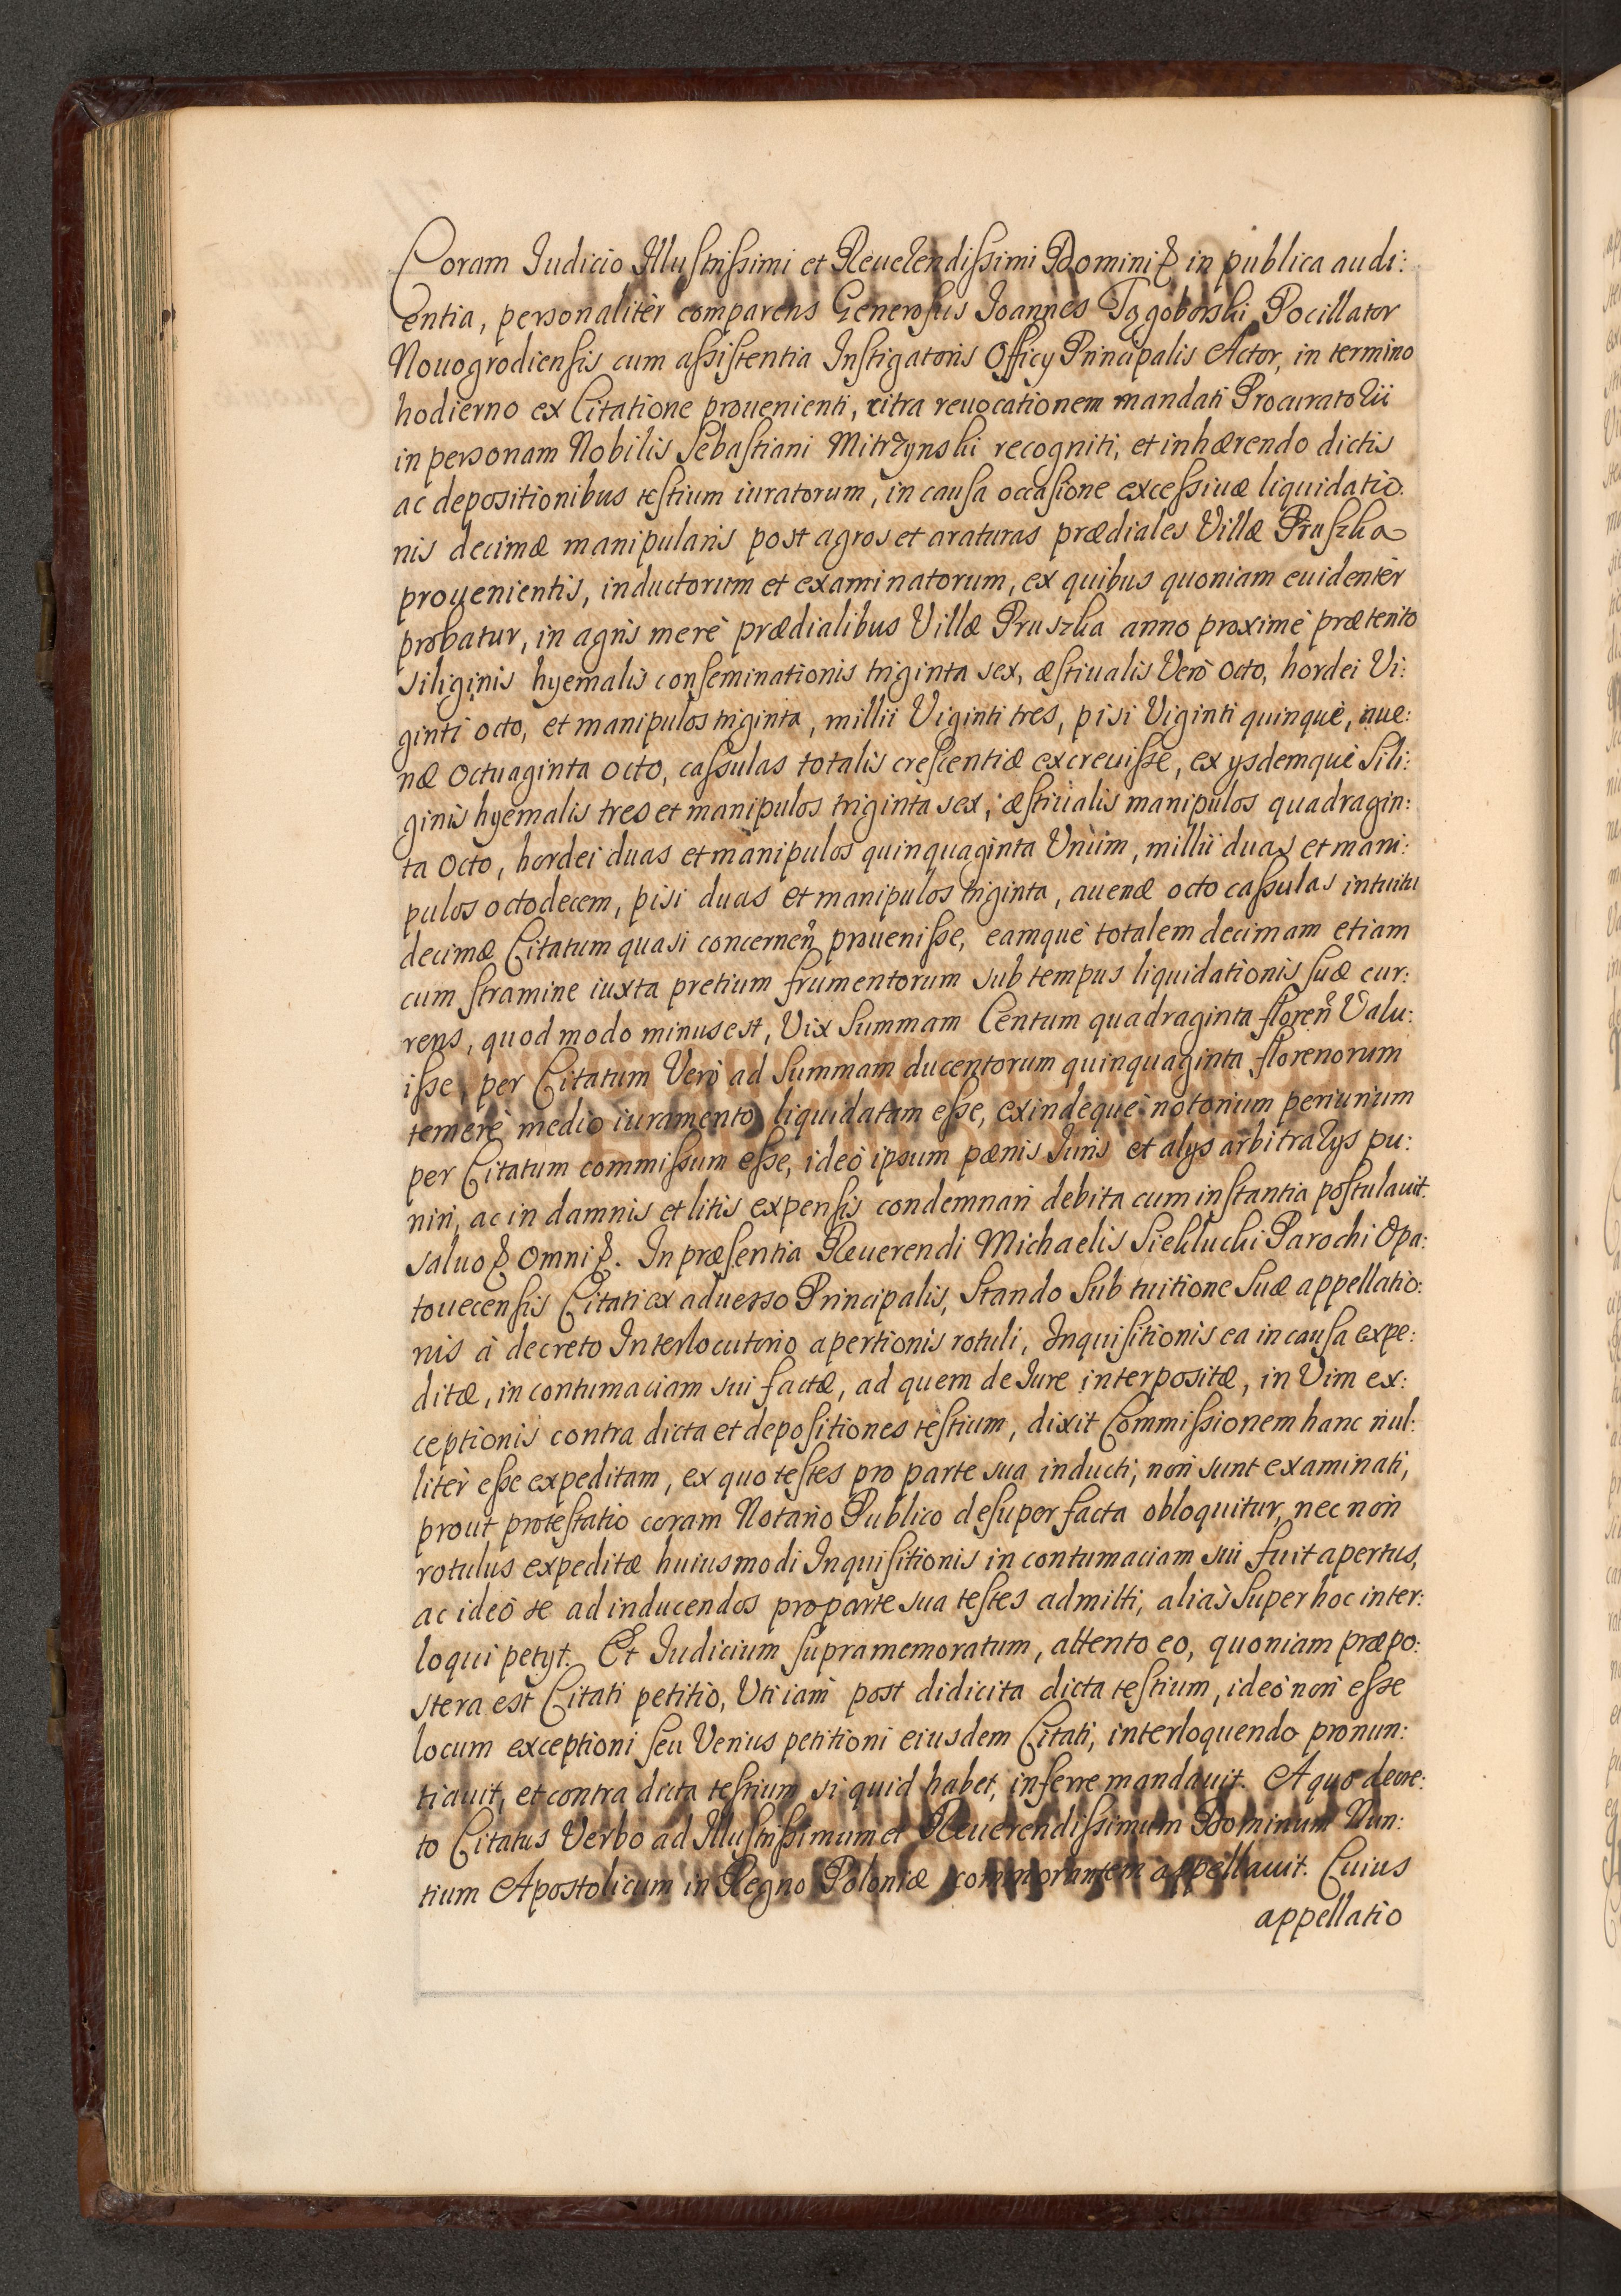 Coram Iudicio Illustrissimi et Reuerendissimi Domini & in publica audi:
entia, personalitèr comparens Generosus Ioannes Tęgoborski Pocillator
Nouogrodiensis cum assistentia Instigatoris Officy Principalis Actor, in termino
hodierno ex Citatione prouenienti, citra reuocationem mandati Procuratorii
in personam Nobilis Sebastiani Mitrzynski recogniti, et inhærendo dictis
ac depositionibus testium iuratorum, in causa occasione excessiuæ liquidatio:
nis decimæ manipularis post agros et araturas prædiales Villæ Pruszka
prouenientis, inductorum et examinatorum, ex quibus quoniam euidentèr
probatur, in agris merè prædialibus Villæ Pruszka anno proximè præterito
siliginis hyemalis conseminationis triginta sex, æstiualis Verò octo, hordei Vi:
ginti octo, et manipulos triginta, millii Viginti tres, pisi Viginti quinquè, aue:
næ octuaginta octo, cassulas totalis crescentiæ excreuisse, ex ysdemquè Sili:
ginis hyemalis tres et manipulos triginta sex, æstiualis manipulos quadragin:
ta octo, hordei duas et manipulos quinquaginta Unum, millii duas et mani:
pulos octodecem, pisi duas et manipulos triginta, auenæ octo cassulas intuitu
decimæ Citatum quasi concernen̄ prouenisse, eamquè totalem decimam etiam
cum stramine iuxta pretium frumentorum sub tempus liquidationis suæ cur:
rens, quod modo minus est, Vix Summam Centum quadraginta floren̄ Valu:
isse, per Citatum Verò ad Summam ducentorum quinquaginta florenorum
temerè medio iuramento liquidatam esse, exindequè notorium periurium
per Citatum commissum esse, ideò ipsum pœnis Iuris et alys arbitrarys pu:
niri, ac in damnis et litis expensis condemnari debita cum instantia postulauit.
saluo & omni &. In præsentia Reuerendi Michaelis Siekłucki Parochi Opa:
touecensis Citati ex aduerso Principalis, Stando Sub tuitione Suæ appellatio:
nis à decreto Interlocutorio apertionis rotuli, Inquisitionis ea in causa expe:
ditæ, in contumaciam sui factæ, ad quem de Iure interpositæ, in Vim ex:
ceptionis contra dicta et depositiones testium, dixit Commissionem hanc nul:
litèr esse expeditam, ex quo testes pro parte sua inducti, non sunt examinati,
prout protestatio coram Notario Publico desuper facta obloquitur, nec non
rotulus expeditæ huiusmodi Inquisitionis in contumaciam sui fuit apertus,
ac ideò se ad inducendos pro parte sua testes admitti, aliàs Super hoc inter:
loqui petyt. Et Iudicium supramemoratum, attento eo, quoniam præpo:
stera est Citati petitio, Uti iam post didicita dicta testium, ideò non esse
locum exceptioni seu Verius petitioni eiusdem Citati, interloquendo pronun:
tiauit, et contra dicta testium si quid habet, inferre mandauit. A quo decre:
to Citatus Verbo ad Illustrissimum et Reuerendissimum Dominum Nun:
tium Apostolicum in Regno Poloniæ commorantem appellauit. Cuius
appellatio